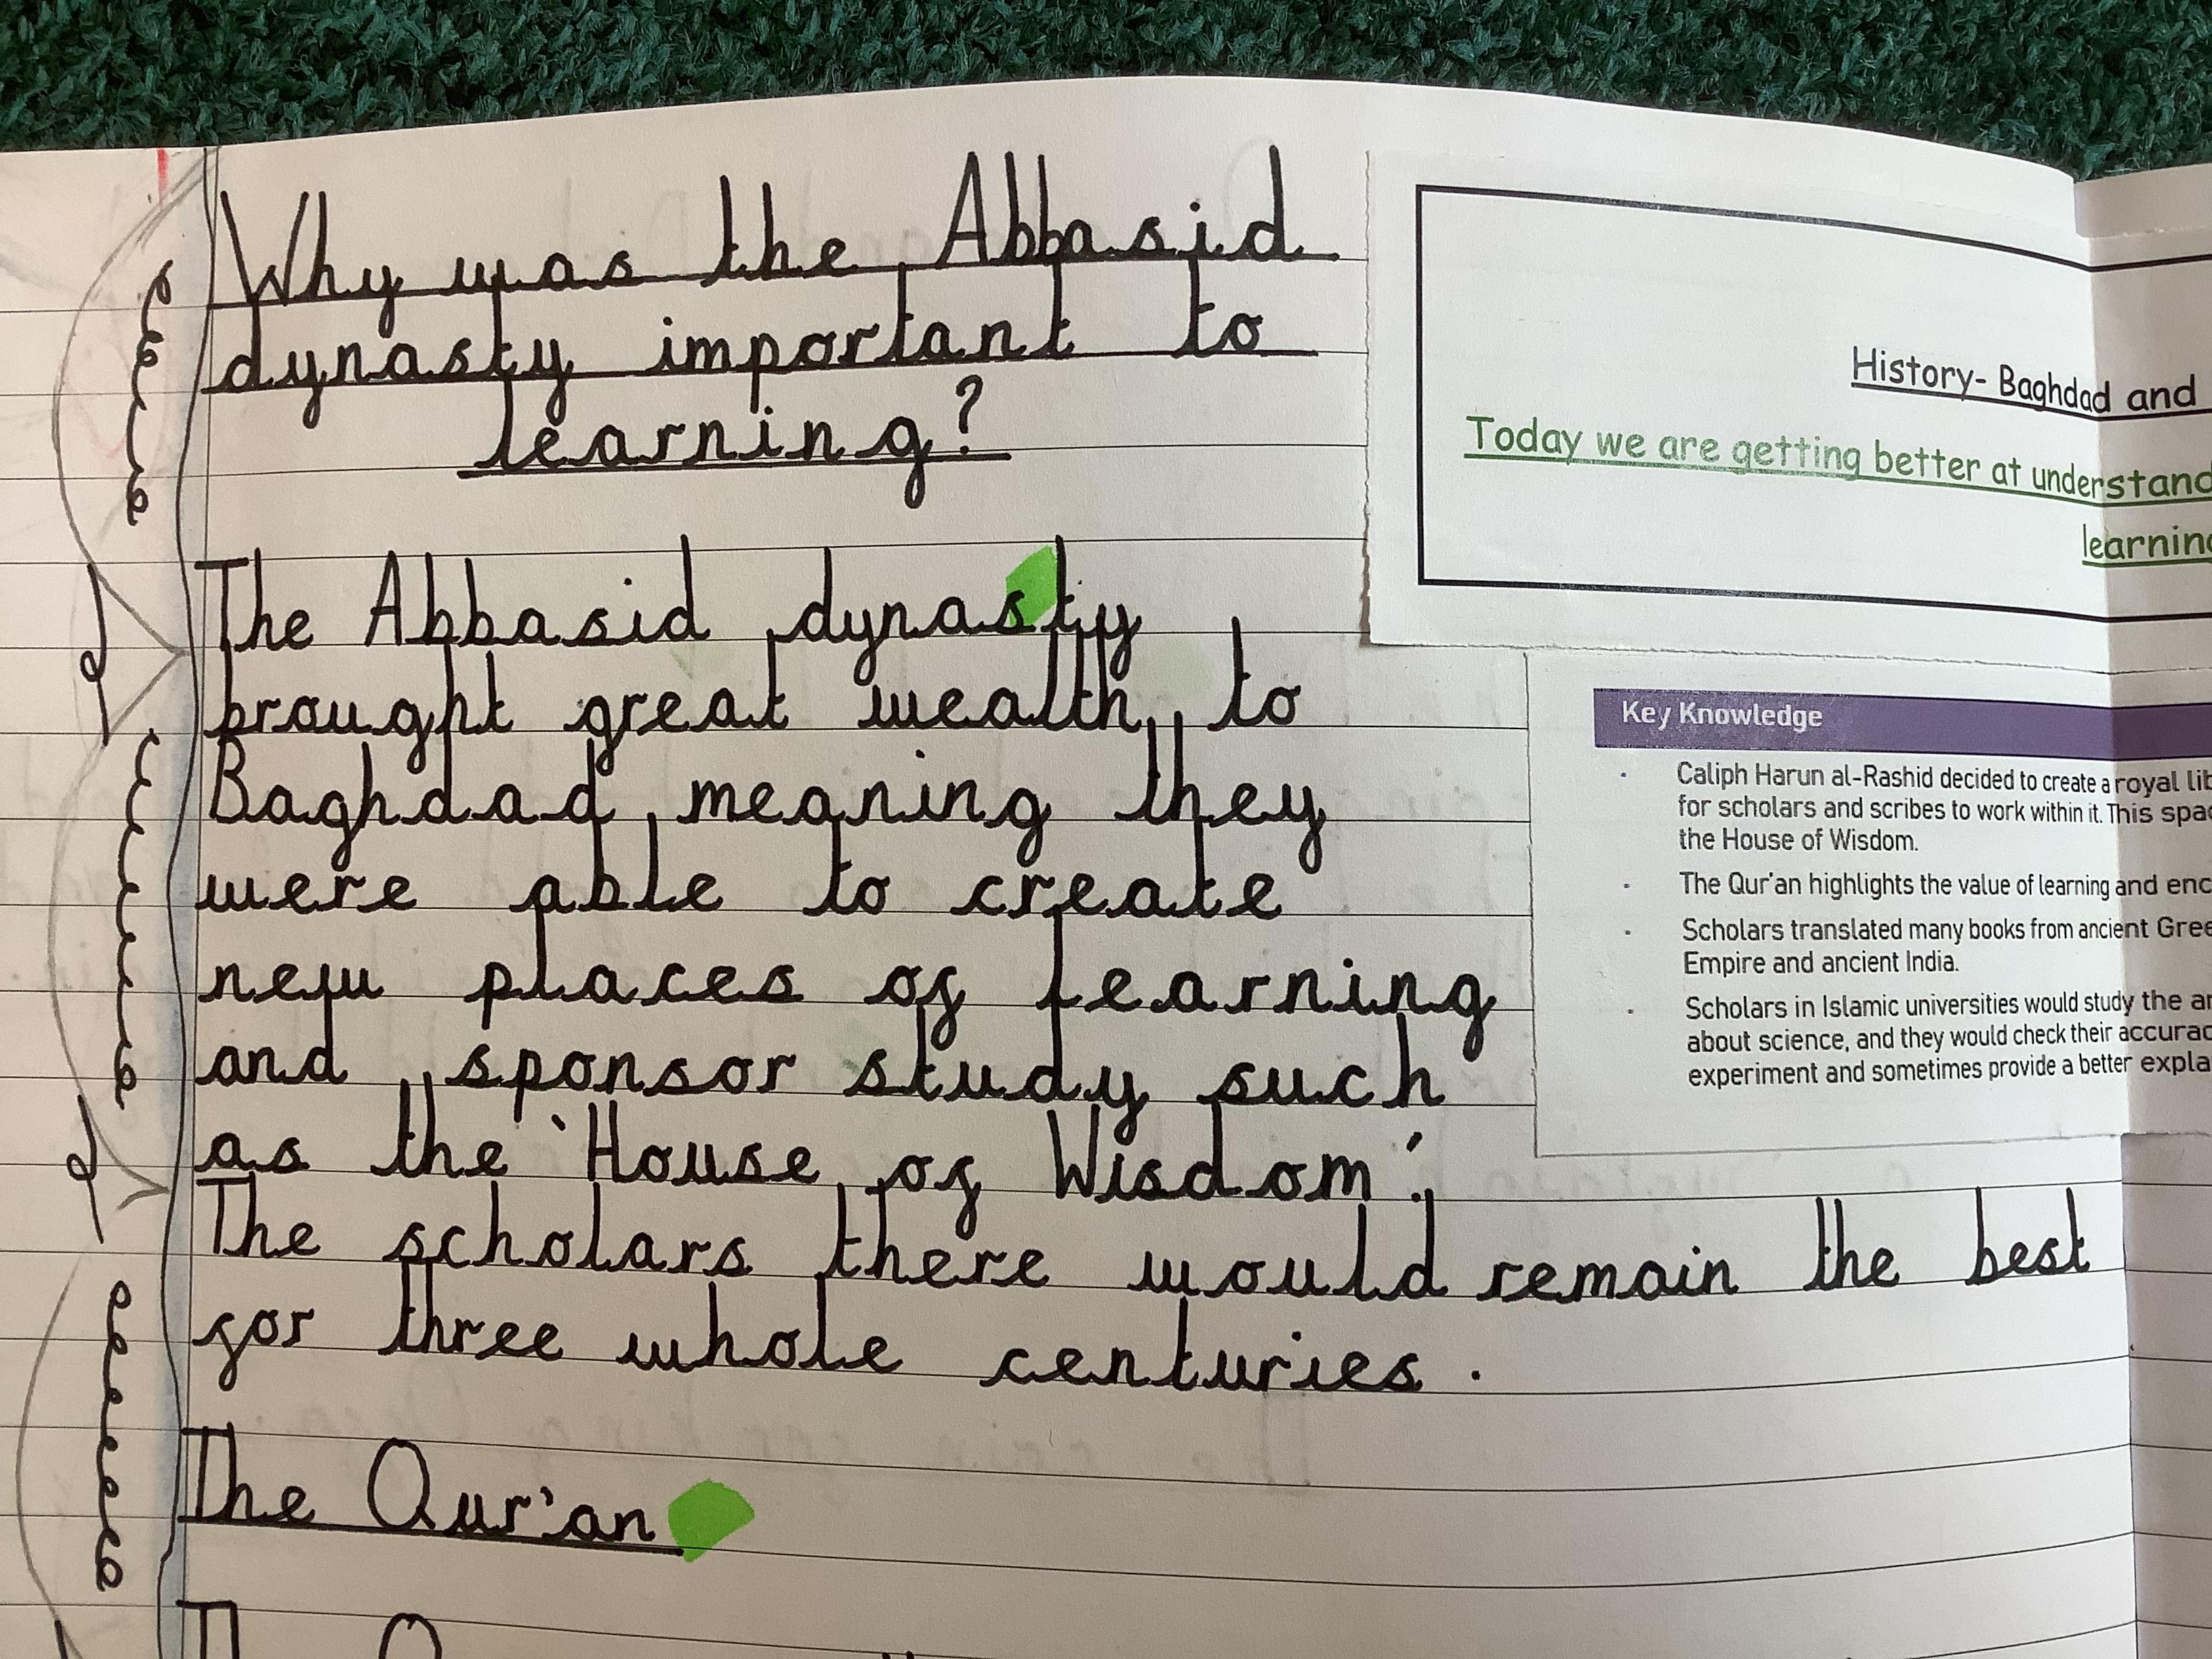 Why was the Abbasid
dynasty important to
learning?
The Abbasid dynasty
brought great wealth to
Baghdad, meaning they
were able to create
new places of learning
and sponsor study such
as the 'House of Wisdom'.
The scholars there would remain the best
for three whole centuries.
The Qur'an
History- Baghdad and
Today we are getting better at understand
learning
Key Knowledge
- Caliph Harun al-Rashid decided to create a royal lib
for scholars and scribes to work within it. This spa
the House of Wisdom.
- The Qur'an highlights the value of learning and enc
- Scholars translated many books from ancient Gree
Empire and ancient India.
- Scholars in Islamic universities would study the an
about science, and they would check their accurac
experiment and sometimes provide a better expla